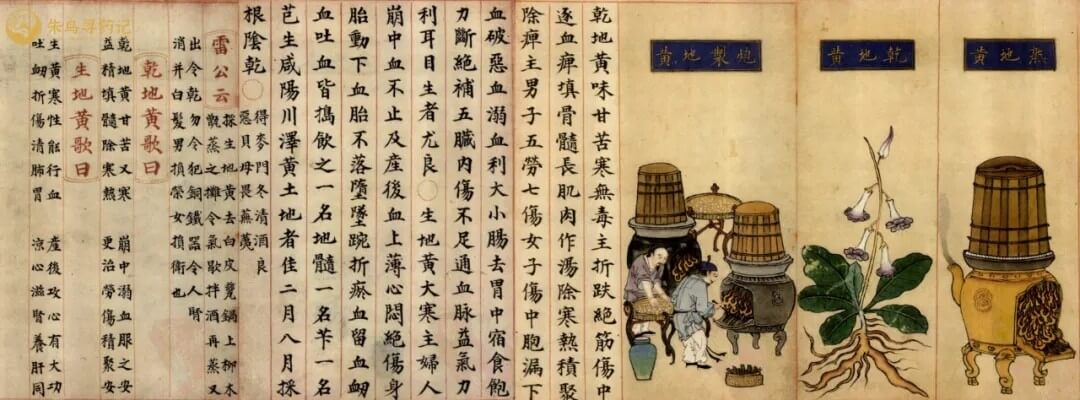 熟地黃
乾地黃
炮製地黃
乾地黃味甘苦寒無毒主折跌絕筋傷中
逐血痺填骨髓長肌肉作湯除寒熱積聚
除痺主男子五勞七傷女子傷中胞漏下
血破惡血溺血利大小腸去胃中宿食飽
力斷絕補五臟內傷不足通血脉益氣力
利耳目生者尤良○生地黃大寒主婦人
崩中血不止及產後血上薄心悶絕傷身
胎動下血胎不落墮墜踠折瘀血留血衂
血吐血皆搗飲之一名地髓一名芐一名
芑生咸陽川澤黃土地者佳二月八月採
根陰乾○
得麥門冬清酒良
惡貝母畏蕪荑
雷公云
採生地黃去白皮甆鍋上柳木
甑蒸之攤令氣歇拌酒再蒸又
出令乾勿令犯銅鐵器令人腎
消并白髮男損榮女損衛也
乾地黃歌曰
乾地黃甘苦又寒 崩中溺血服之安
益精填髓除寒熱 更治勞傷積聚安
生地黃歌曰
生黃寒性能行血 產後攻心有大功
吐衂折傷清肺胃 涼心滋腎養肝同
朱鸟寻药记